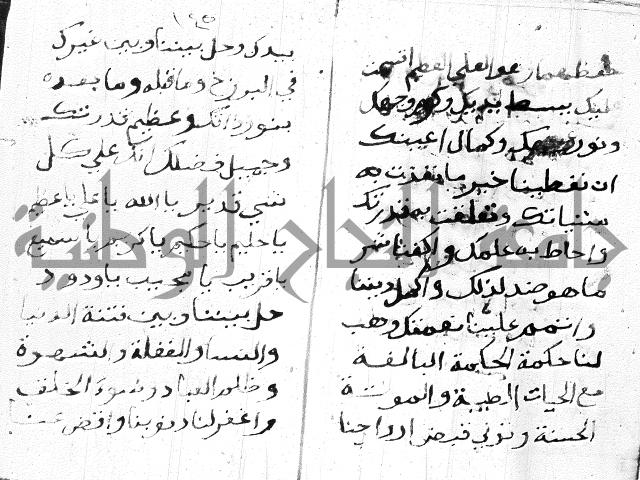 حفظهما وهو العلي العظيم اقسمت
عليك ببسط يديك وكرم وجهك
ونور وجهك وكمال اعينك
ان تعطينا خير ما نفذت به
مشيئتك وتعلقت به قدرتك
واحاط به علمك واكفنا شر
ما هو ضد لذلك واكمل ديننا
واتمم علينا نعمتك وهب
لنا حكمة الحكمة البالغة
مع الحيات الطيبة والموتة
الحسنة وتولي قبض ارواحنا
١٤٥
بيدك وحل بيننا وبين غيرك
في البرزخ وما قبله وما بعده
بنور ذاتك وعظيم قدرتك
وجميل فضلك انك علي كل
شي قدير يا الله يا علي يا عظيم
يا حليم يا حكيم يا كريم يا سميع
يا قريب يا مجيب يا ودود
حل بيننا وبين فتنة الدنيا
والنساء والغفلة والشهوة
وظلم العباد وسوء الخلق
واغفر لنا ذنوبنا واقض عنا
جامعة النجاح الوطنية